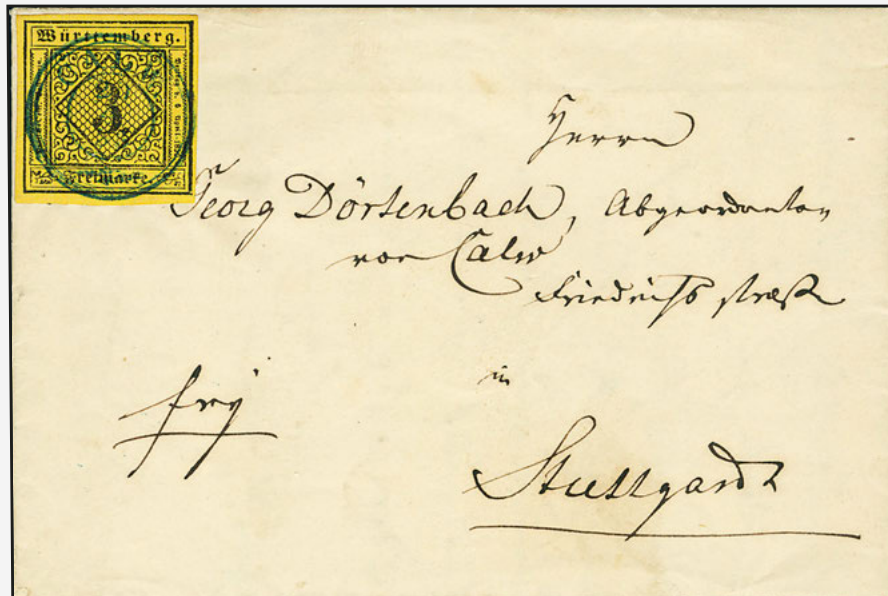 Württemberg.
3
Freimarke.
CALW
Herrn
Georg Dörtenbach, Abgeordneten
von Calw
Friedrichsstraße
in
Stuttgardt
frey